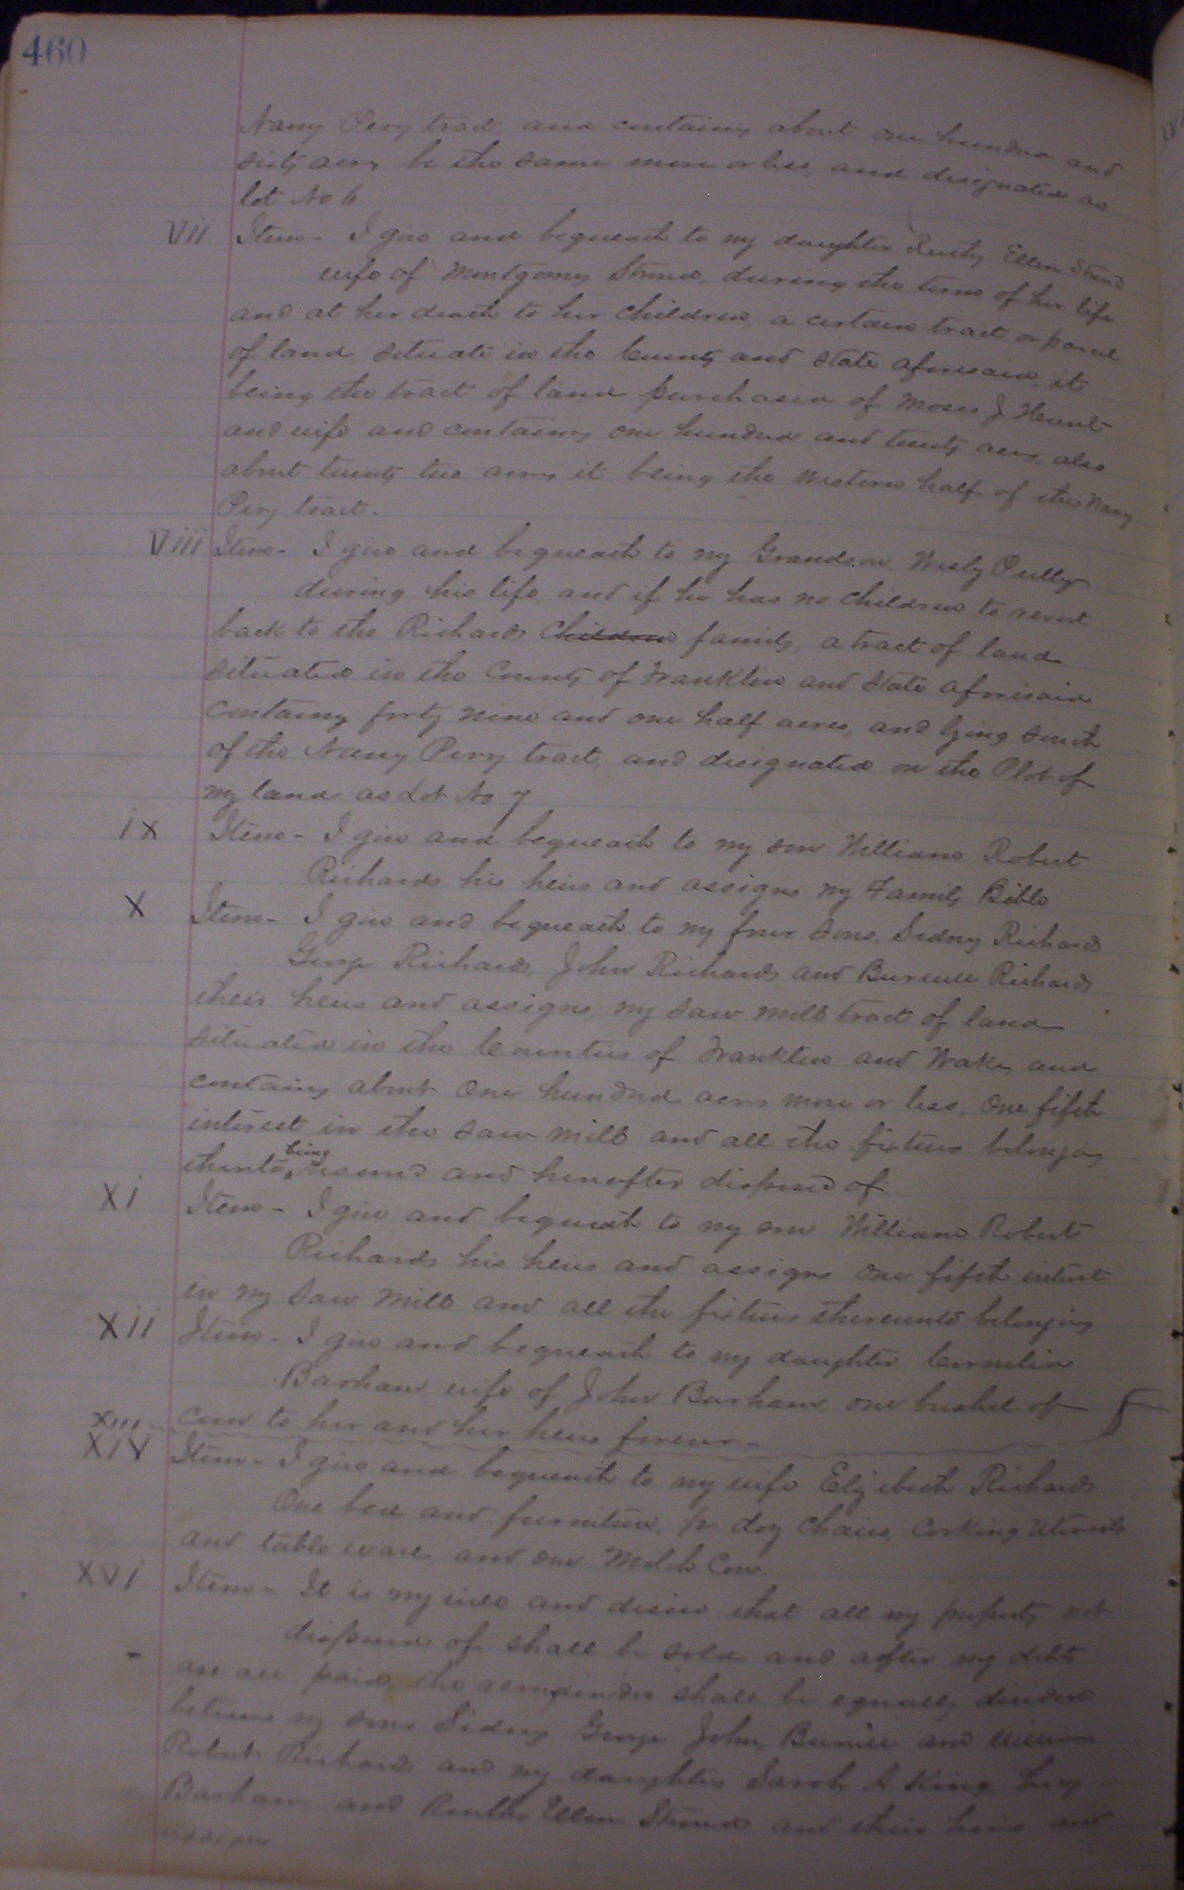 460
Nancy Pery tract and containing about one hundred and
sixty acres be the same more or less, and designated as
lot No 6
Vii Item - I give and bequeath to my daughter Ellen Strud
wife of Montgomery Strud, during the term of her life
and at her death to her children, a certain tract or parcel
of land situate in the County and State aforesaid, it
being the tract of land purchased of Moses J
and wife and containing one hundred and twenty acres, also
about twenty two acres it being the Western half of the Nancy
Pery tract.
Viii Item - I give and bequeath to my Grandson Wesly Pully
during his life, and if he has no children to revert
back to the Richards Children family, a tract of land
situated in the County of Franklin and State aforesaid
containg forty nine and one half acres, and lying South
of the Nancy Pery tract, and designated on the Plot of
my land as Lot No 7
ix Item - I give and bequeath to my son William Robert
Richards his heirs and assigns my Family Bible
X Item - I give and bequeath to my four sons, Sidney Richards
George Richards, John Richards and Burwell Richards
their heirs and assigns, my Saw mill tract of land
situated in the Counties of Franklin and Wake, and
containg about One hundred acres more or less, One fifth
interest in the Saw mill and all the fixtures belonging
thereto being reserved and hereafter disposed of
Xi Item - I give and bequeath to my son William Robert
Richards his heirs and assigns one fifth interest
in my Saw Mill and all the fixtures thereunto belonging
Xii Item - I give and bequeath to my daughter Cornelia
Barham wife of John Barham one bushel of
Xiii corn to her and her heirs forever -
XiV Item - I give and bequeath to my wife Elizabeth Richards
One bed and furniture, 1/2 doz Chairs, Cooking Utensils
and table ware, and one Milch Cow.
XVi Item - It is my will and desire that all my property not
disposed of shall be sold and after my debts
are all paid, the remainder shall be equally divided
between my sons Sidney George John, Burwell and William
Robert Richards and my daughters Sarah A King Lucy
Barham and Ellen Strud and their heirs and
assigns